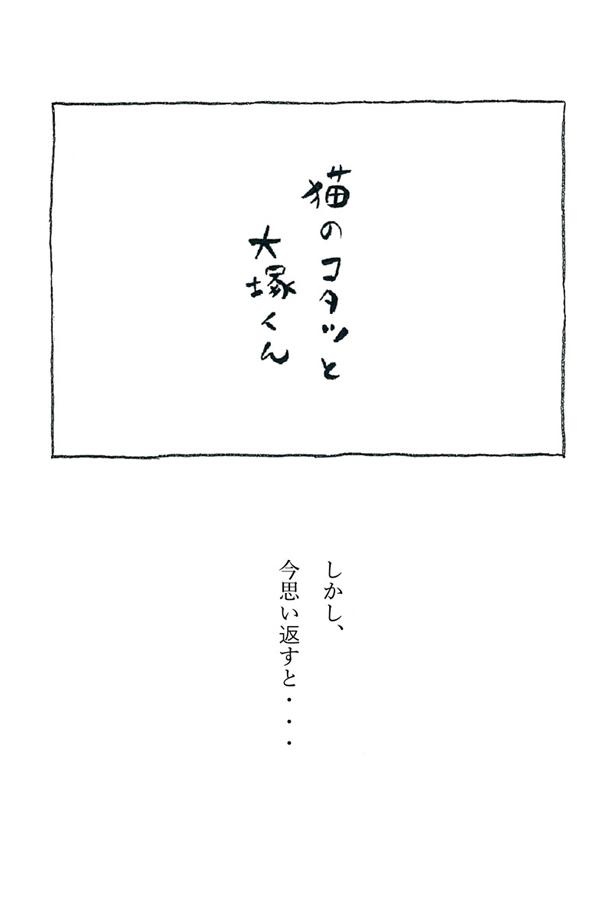 猫のコタツと
大塚くん
しかし、
今思い返すと・・・